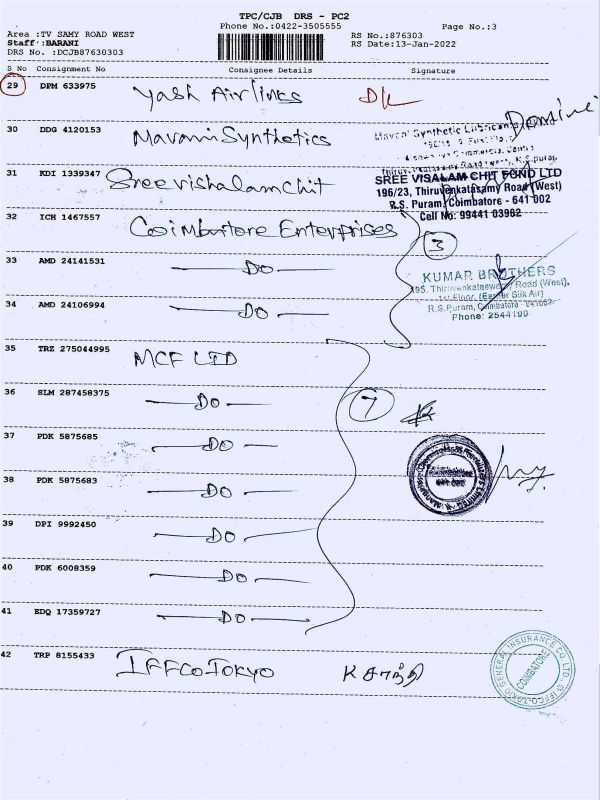 TPC/CJB DRS - PC2
Phone No.:0422-3505555 Page No.:3
Area :TV SAMY ROAD WEST RS No.:876303
Staff :BARANI RS Date:13-Jan-2022
DRS No. :DCJB87630303
S No Consignment No Consignee Details Signature
29 DPM 633975 Yash Airlinks
30 DDG 4120153 Mavani Synthetics
31 KDI 1339347 Sree vishalam chit
SREE VISALAM CHIT FUND LTD
196/23, Thiruvenkatasamy Road (West)
R.S. Puram, Coimbatore - 641 002
Cell No: 99441 03982
32 ICH 1467557 Coimbatore Enterprises
3
33 AMD 24141531 — DO —
KUMAR BROTHERS
195, Road (West),
1st Floor, Silk Air)
R.S.Puram, Coimbatore - 641002.
Phone: 2544190
34 AMD 24106994 — DO —
35 TRZ 275044995 MCF LTD
36 SLM 287458375 — DO —
7
37 PDK 5875685 — DO —
38 PDK 5875683 — DO —
39 DPI 9992450 — DO —
40 PDK 6008359 — DO —
41 EDQ 17359727 — DO —
42 TRP 8155433 IFFCO-TOKYO K சாந்தி
IFFCO-TOKIO GENERAL INSURANCE CO. LTD.
COIMBATORE